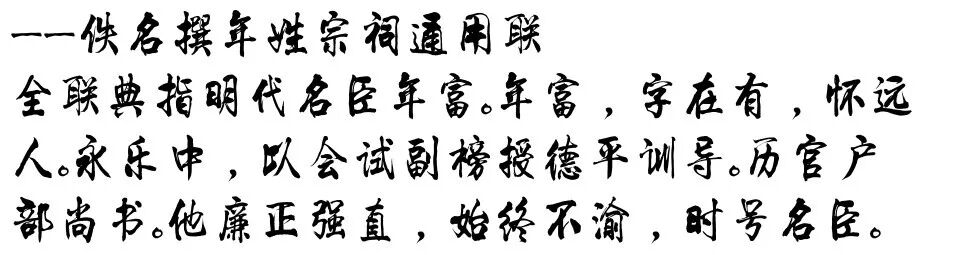 ——佚名撰年姓宗祠通用联
全联典指明代名臣年富。年富，字在有，怀远
人。永乐中，以会试副榜授德平训导。历官户
部尚书。他廉正强直，始终不渝，时号名臣。